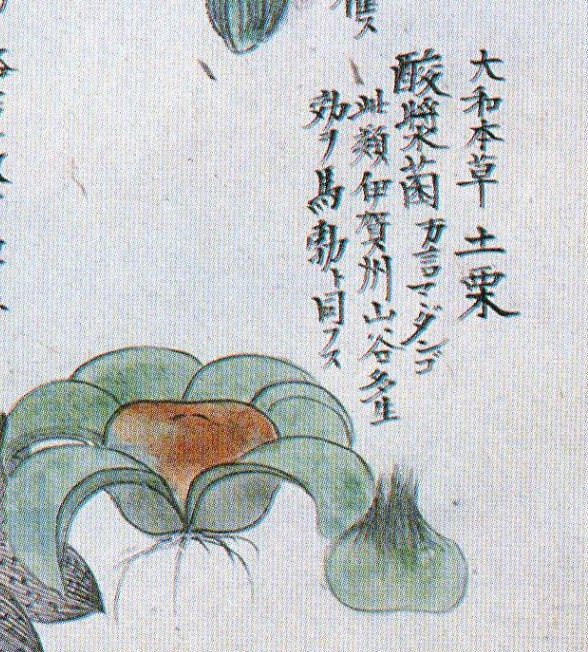 大和本草 土栗
酸漿菌 方言マメダンゴ
此類伊賀州山谷多生
効ヲ馬勃ト同フス